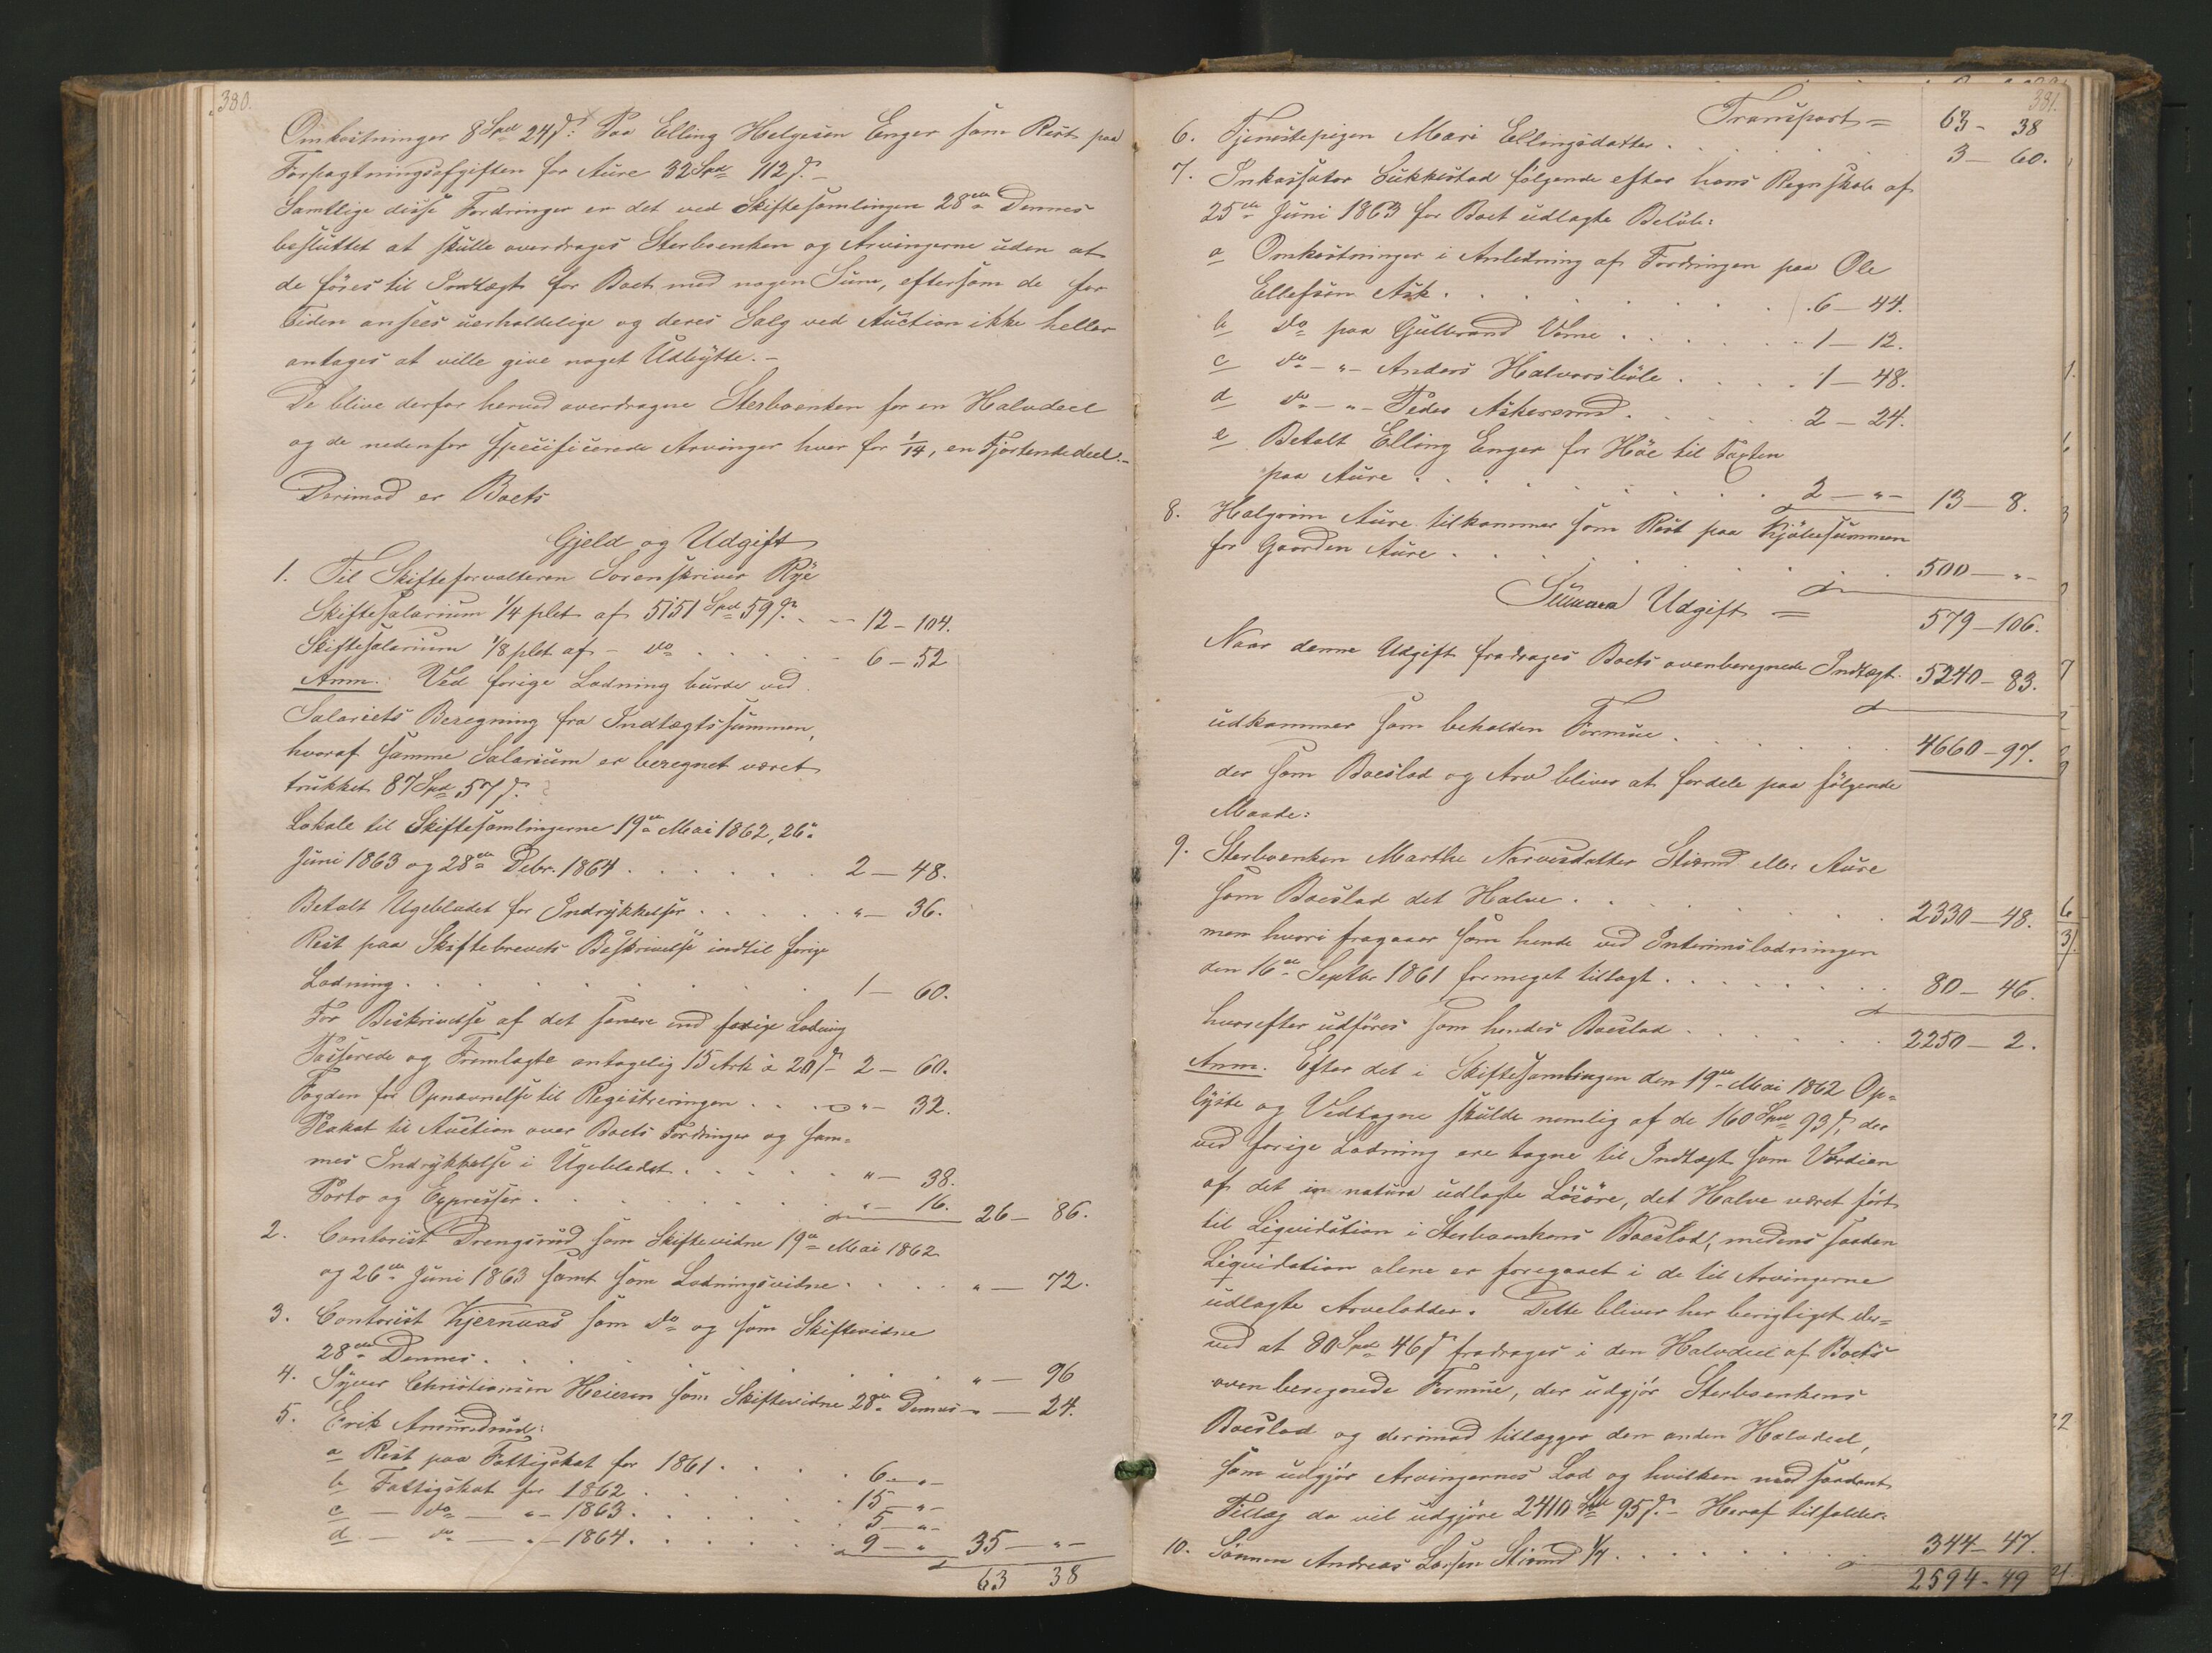 380.
Omkostninger 8 Spd 24 s: Paa Elling Helgesen Enger som Rest paa
Forpagtningsafgiften for Aure 32 Spd 112 s. –
Samtlige disse Fordringer er det ved Skiftesamlingen 28de Dennes
besluttet at skulle overdrages Sterboenken og Arvingerne uden at
de føres til Indtægt for Boet med nogen Sum, eftersom de for
Tiden ansees uerholdelige og deres Salg ved Auction ikke heller
antages at ville give noget Udbytte. –
De blive derfor herved overdragne Sterboenken for en Halvdeel
og de nedenfor specificerede Arvinger hver for 1/14, en Fjortendedeel. –
Derimod er Boets
Gjeld og Udgift
1. Til Skifteforvalteren Sorenskriver Rye
Skiftesalarium 1/4 pCt af 5151 Spd 59 s. . . – 12 – 104.
Skiftesalarium 1/8 pCt af – do . . . . . – 6 – 52
Anm.: Ved forige Lodning burde ved
Salariets Beregning fra Indtægtssummen,
hvoraf samme Salarium er beregnet været
trukket 87 Spd 57 s.
Lokale til Skiftesamlingerne 19de Mai 1862, 26de
Juni 1863 og 28de Debr. 1864 . . . . . . 2 – 48.
Betalt Ugebladet for Indrykkelser . . . . . " – 36.
Rest paa Skiftebrevets Beskrivelse indtil forige
Lodning . . . . . . . . . . 1 – 60.
For Beskrivelse af det senere end forige Lodning
Passerede og Fremlagte antagelig 15 Ark à 20 s – 2 – 60.
Fogden for Opnævnelse til Registreringen . . . " – 32.
Plakat til Auction over Boets Fordringer og sam=
mes Indrykkelse i Ugebladet . . . . . . " – 38.
Porto og Expresser . . . . . . . . . " – 16. 26 – 86.
2. Contorist Drengsrud som Skiftevidne 19de Mai 1862
og 26de Juni 1863 samt som Lodningsvidne . . . . " – 72.
3. Contorist Kjernaas som do og som Skiftevidne
28de Dennes . . . . . . . . . . " – 96
4. Syver Christiansen Heieren som Skiftevidne 28de Dennes – " – 24.
5. Erik Amundrud:
a Rest paa Fattigskat for 1861 . . . . 6 – " –
b Fattigskat for 1862 . . . . . . 15 – " –
c – do – " – 1863 . . . . . . 5 – " –
d – do – " – 1864 . . . . . . 9 – " 35 – " –
63 38
381.
Transport = 63 – 38
6. Tjenestepigen Mari Ellingsdatter . . . . . . 3 – 60.
7. Inkassator Lükkestad følgende efter hans Regnskab af
25de Juni 1863 for Boet udlagte Beløb:
a Omkostninger i Anledning af Fordringen paa Ole
Ellefsen Ask . . . . . . . . . . 6 – 44.
b do paa Gulbrand Vorne . . . . . . 1 – 12.
c do – " – Anders Halvorsbøle . . . . 1 – 48.
d do – " – Peder Askerud . . . . . 2 – 24.
e Betalt Elling Enger for Høe til Taxten
paa Aure . . . . . . . . . 2 – " – 13 – 8.
8. Halgrim Aure tilkommer som Rest paa Kjøbesummen
for Gaarden Aure . . . . . . . . . 500 – " –
Summa Udgift = 579 – 106.
Naar denne Udgift fradrages Boets ovenberegnede Indtægt 5240 – 83.
udkommer som beholden Formue . . . . . . 4660 – 97.
der som Boeslod og Arv bliver at fordele paa følgende
Maade:
9. Sterboenken Marthe Narvesdatter Stisrud eller Aure
som Boeslod det Halve . . . . . . . . 2330 – 48.
men hvori fragaaer som hende ved Interimslodningen
den 16de Septbr 1861 formeget tillagt . . . . . . . 80 – 46.
hvorefter udføres som hendes Boeslod . . . . . . 2250 – 2.
Anm. Efter det i Skiftesamlingen den 19de Mai 1862 Op=
lyste og Vedtagne skulde nemlig af de 160 Spd 93 s, der
ved forige Lodning ere tagne til Indtægt som Værdien
af det in natura udlagte Løsøre, det Halve været ført
til Liquidation i Sterboenkens Boeslod, medens saadan
Liquidation alene er foregaaet i de til Arvingerne
udlagte Arvelodder. Dette bliver her berigtiget der=
ved at 80 Spd 46 s fradrages i den Halvdeel af Boets
ovenberegnede Formue, der udgjør Sterboenkens
Boeslod og derimod tillægges den anden Halvdeel,
som udgjør Arvingernes Lod og hvilken med saadant
Tillæg da vil udgjøre 2410 Spd 95 s. – Heraf tilfalder:
10. Sønnen Andreas Larsen Stisrud 1/7 . . . . . . 344 – 47.
2594 – 49